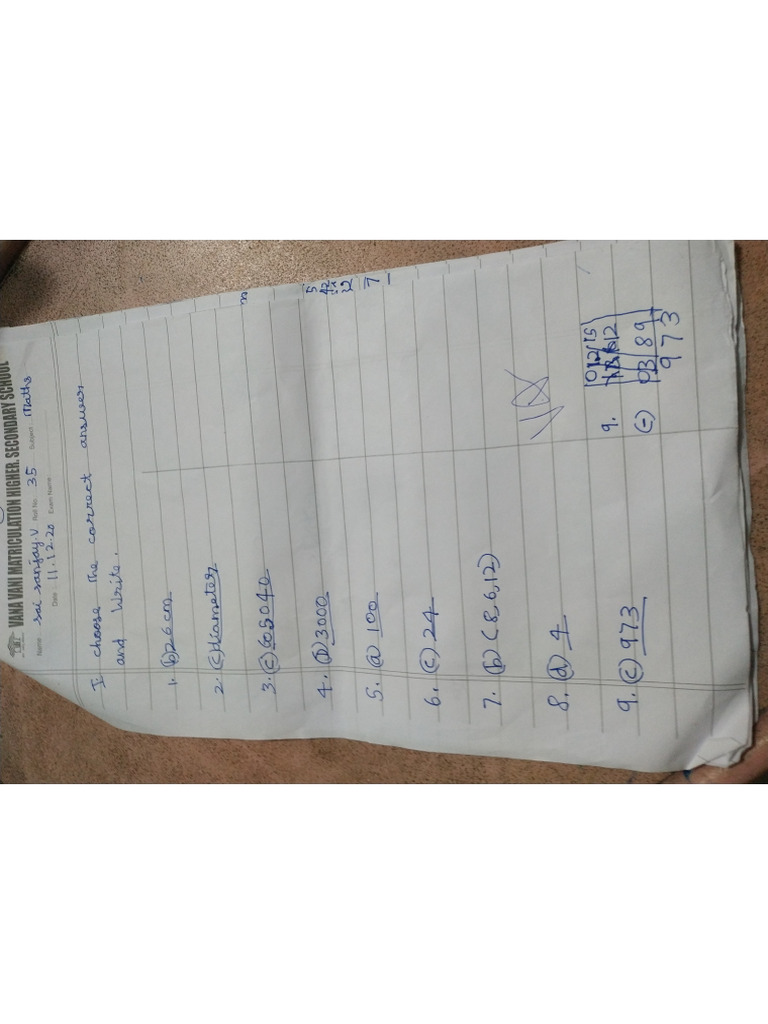 VANA VANI MATRICULATION HIGHER. SECONDARY SCHOOL
Name : Sai Sanjay.V Roll No. : 35 Subject : Maths
Date : 11.12.20 Exam Name :
I. choose the correct answer
and Write.
1. b) 26cm
2. (c) diameter
3. (c) 605040
4. (b) 3000
5. (a) 100
6. (c) 24
7. (b) (8,6,12)
8. (a) 4
9. (c) 973
9.
(-) 0389
973